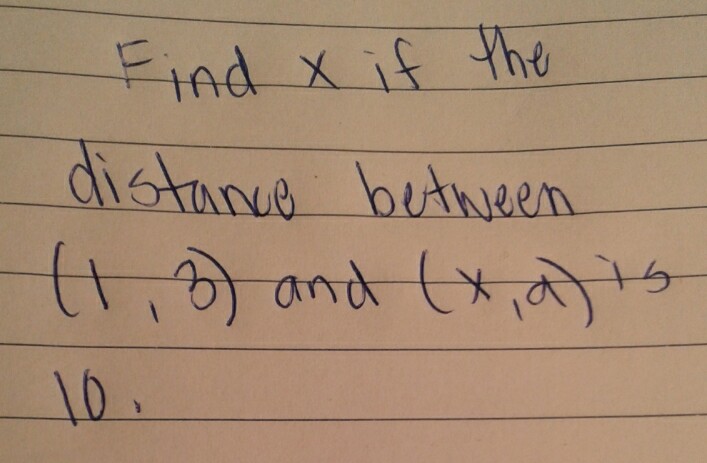 Find x if the
distance between
(1, 3) and (x, a) is
10.